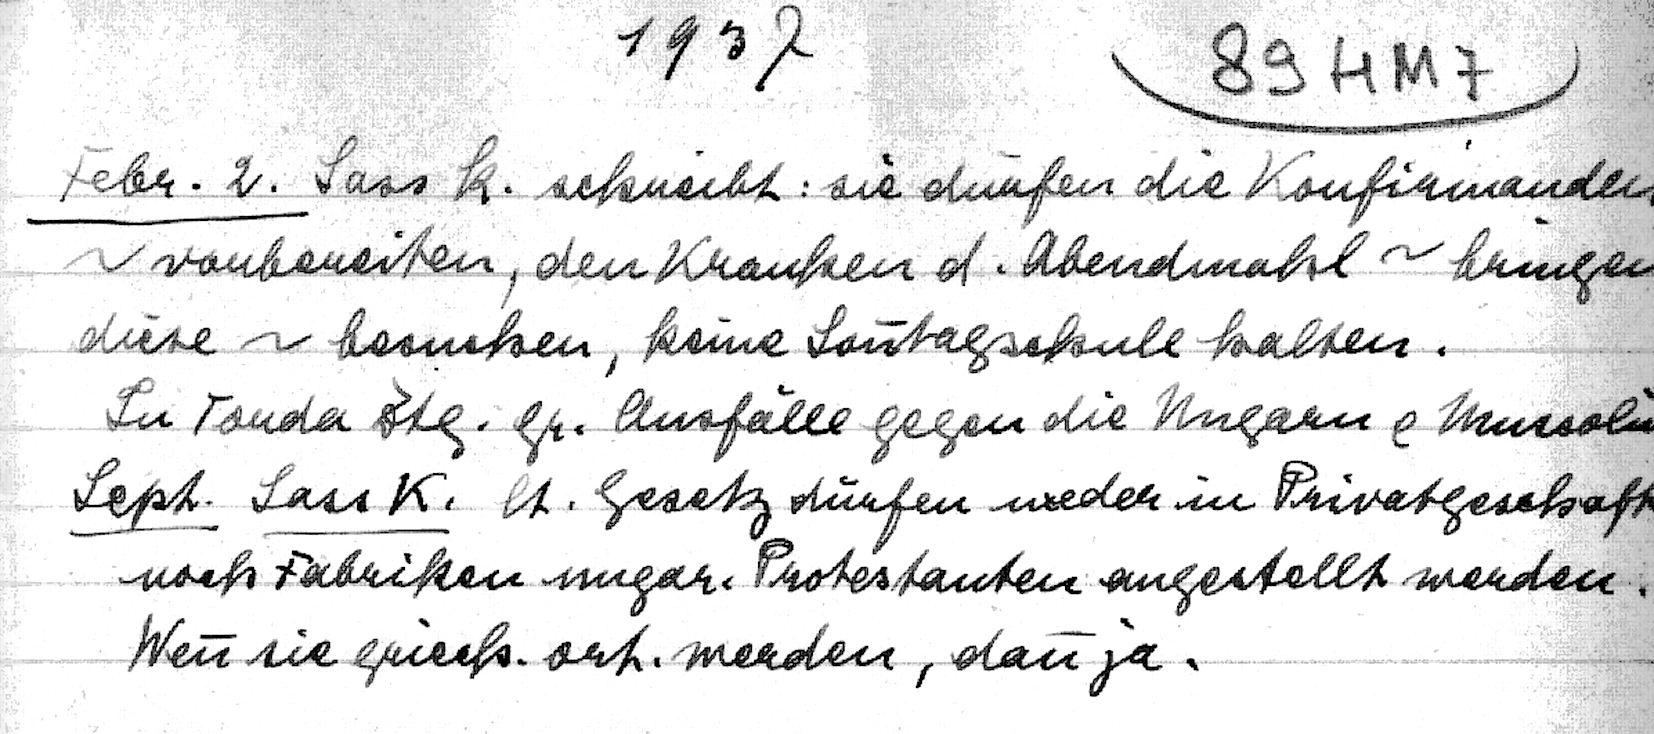 1937
89 HM7
Febr. 2. Sass K. schreibt: sie dürfen die Konfirmanden
~ vorbereiten, den Kranken d. Abendmahl ~ bringen
diese ~ besuchen, keine Soñtagschule halten.
In Torda Ztg. gr. Ausfälle gegen die Ungarn
Sept. Sass K. lt. Gesetz dürfen weder in Privatgeschäft
noch Fabriken ungar. Protestanten angestellt werden.
Weñ sie griech. ort. werden, dañ ja.